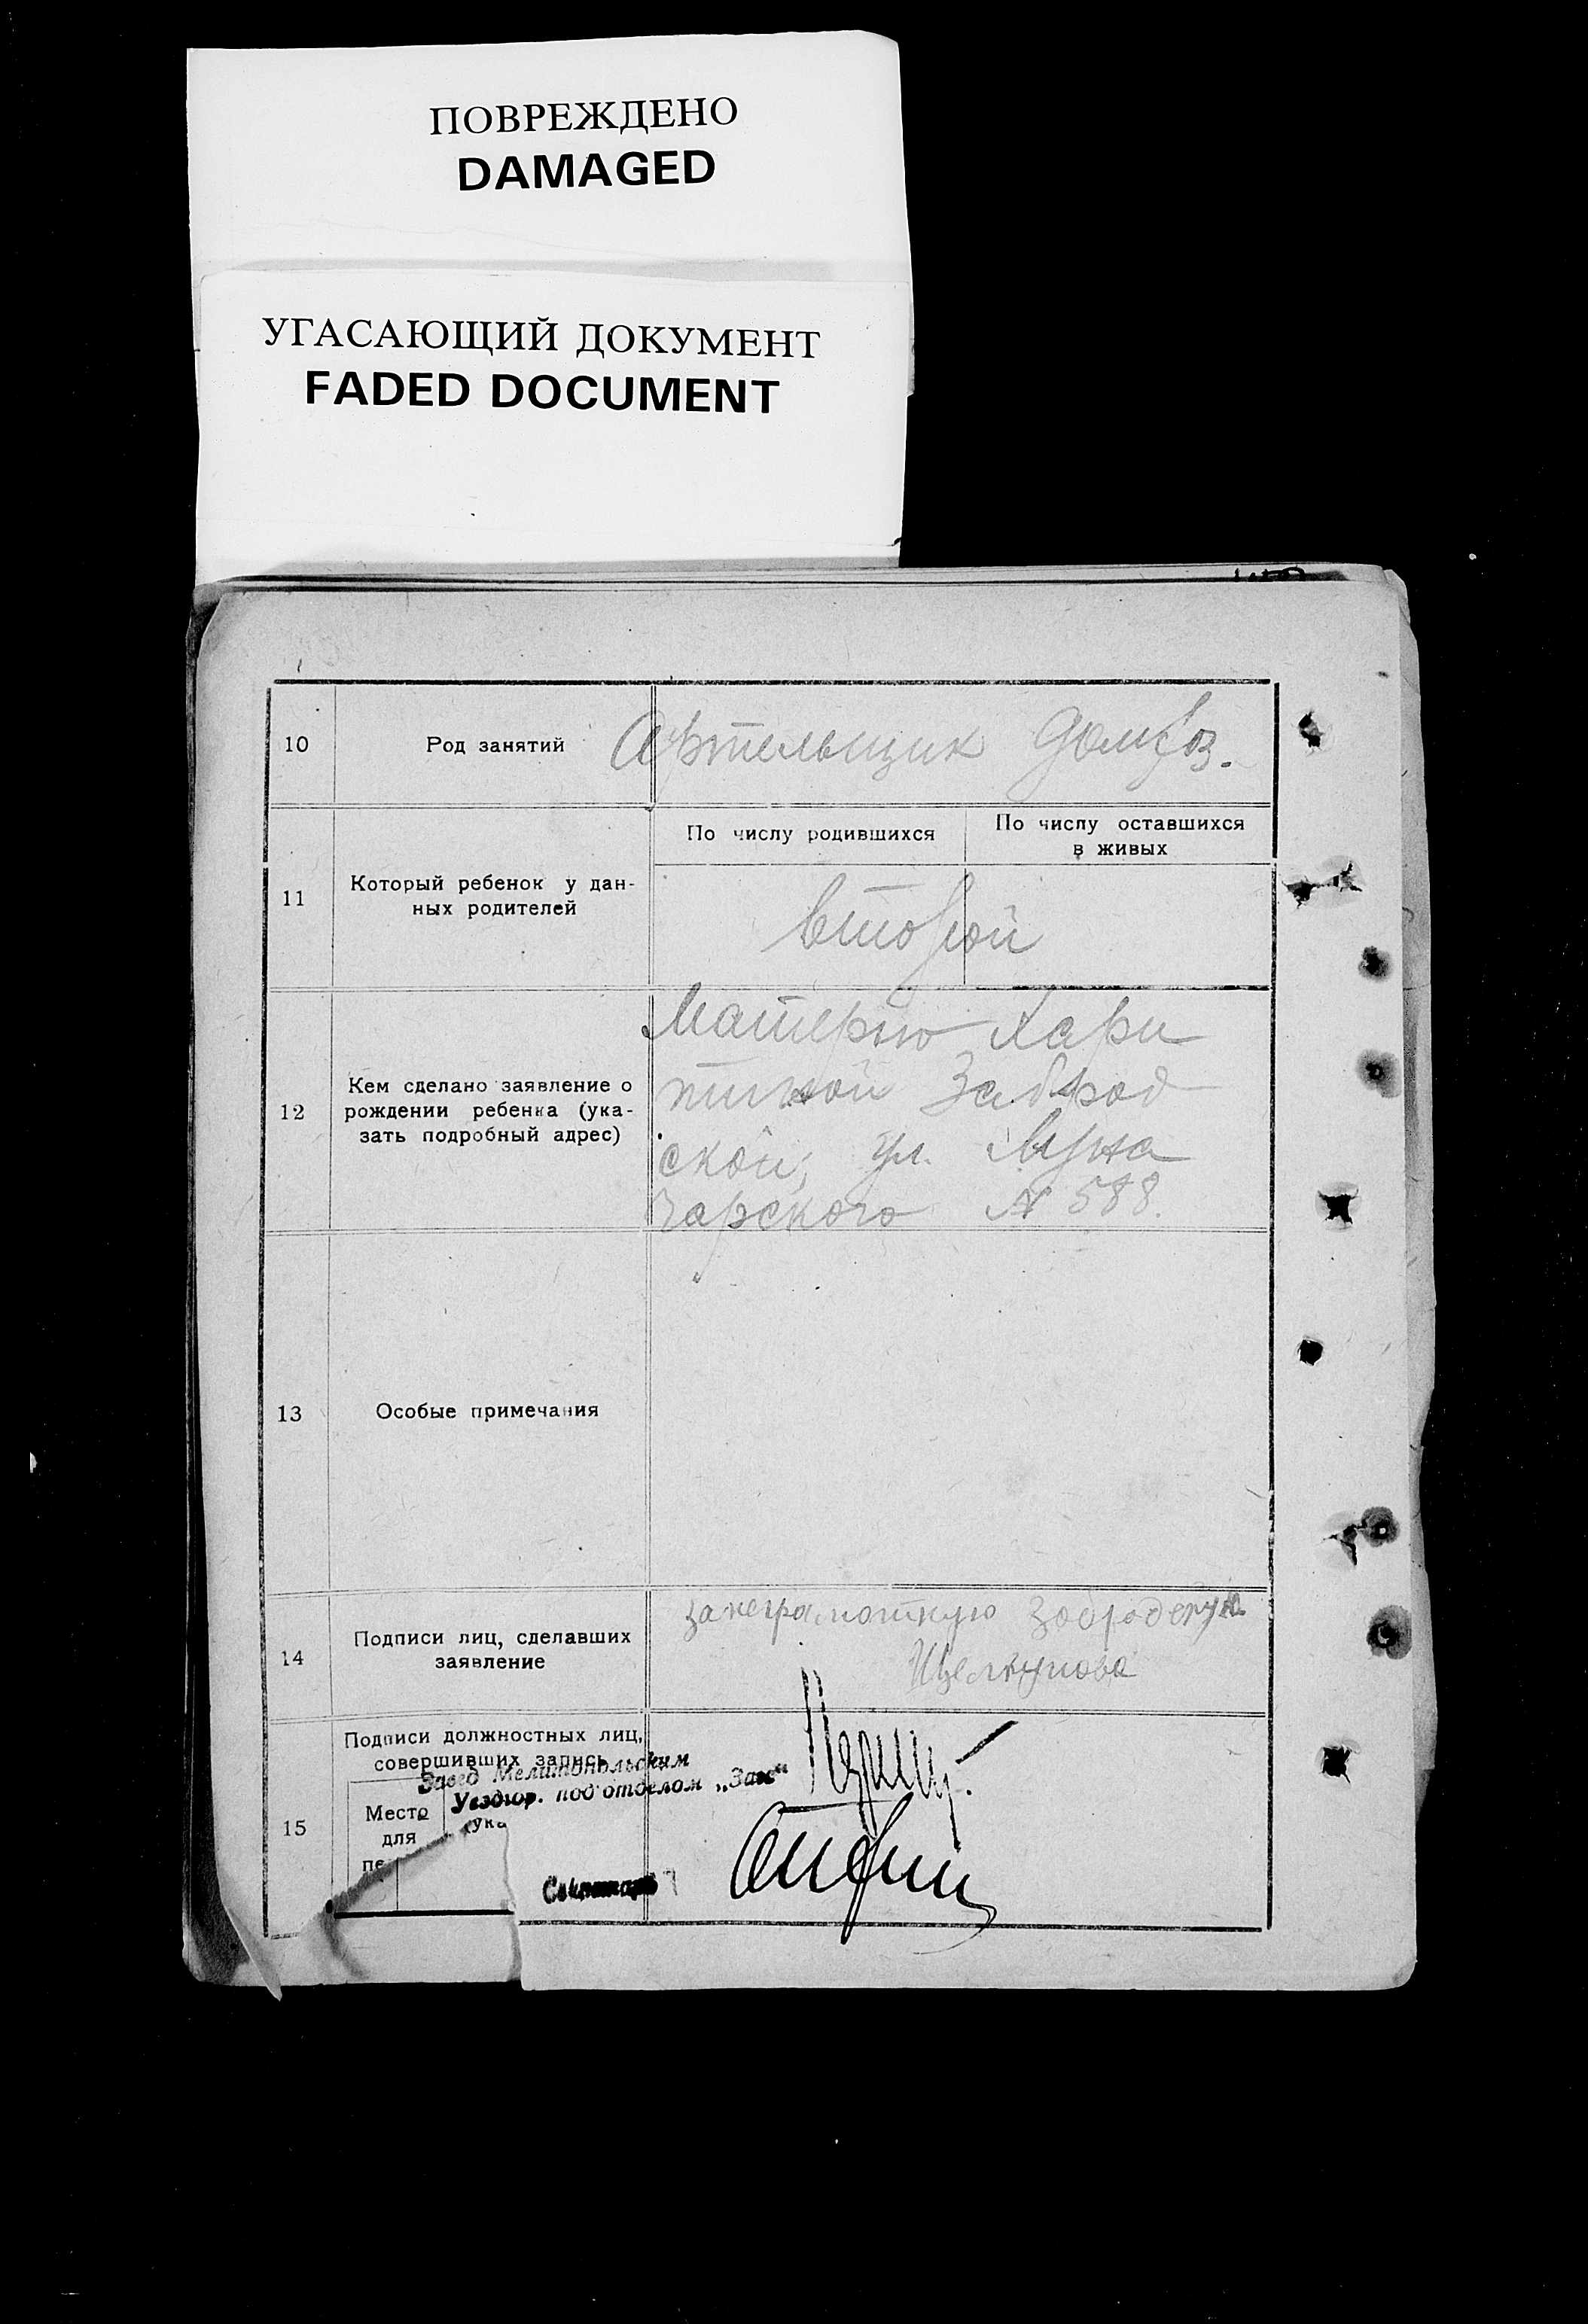 ПОВРЕЖДЕНО
DAMAGED
УГАСАЮЩИЙ ДОКУМЕНТ
FADED DOCUMENT
10 Род занятий Артельщик
11 Который ребенок у дан-
ных родителей
По числу родившихся
По числу оставшихся
в живых
второй
12 Кем сделано заявление о
рождении ребенка (ука-
зать подробный адрес)
Матерью Хари
тиной Заброд
ской, ул. Луна
чарского № 588.
13 Особые примечания
14 Подписи лиц, сделавших
заявление
за неграмотную Забродскую
15 Подписи должностных лиц,
совершивших запись
Завед Мелитопольским
Уездюр. подотделом „Загс“
Место
для
Секретарь